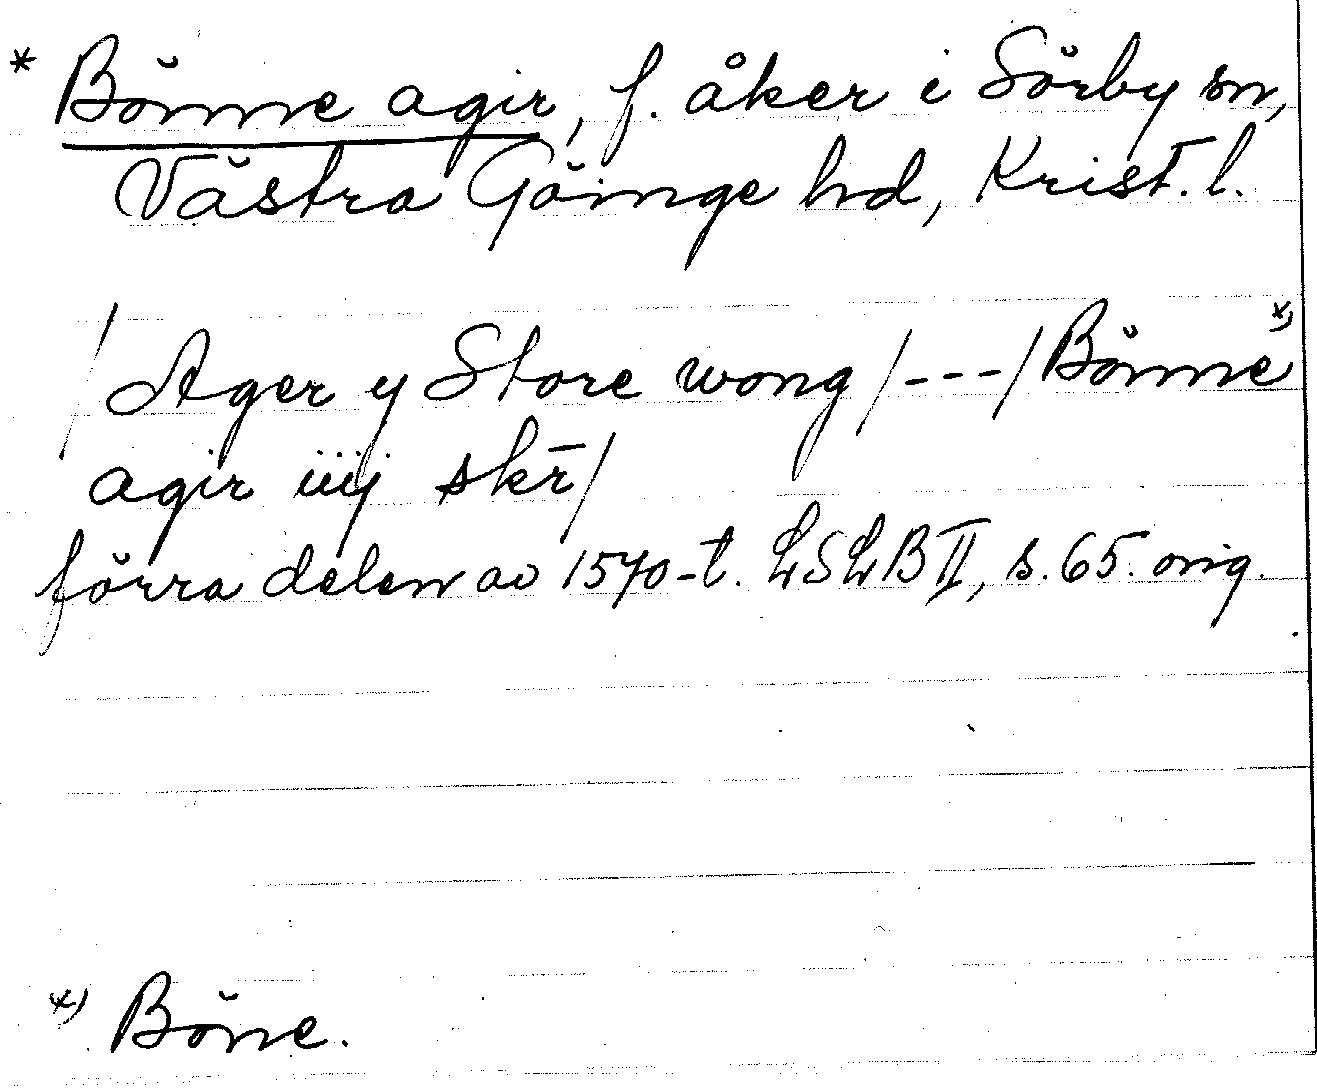 * Bönne agir, f. åker i Sörby sn,
Västra Göinge hd, Krist. l.
/ Ager y Store wong /---/ Bönne x)
agir iiij skr̄ /
förra delen av 1570-t. LSLB II, s. 65. orig.
x) Böne.